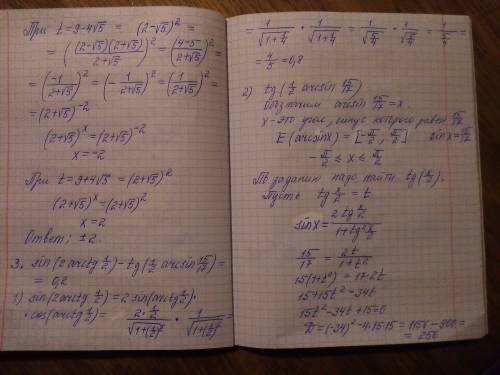 При t=9-4√5 = (2-√5)² =
= ((2-√5)(2+√5)/(2+√5))² = ((4-5)/(2+√5))² =
= (-1/(2+√5))² = (-1/(2+√5))² = (1/(2+√5))² =
= (2+√5)⁻²
(2+√5)ˣ = (2+√5)⁻²
x = -2
При t = 9+4√5 = (2+√5)²
(2+√5)ˣ = (2+√5)²
x = 2
Ответ: ±2.
3. sin(2arctg 1/2) - tg(1/2 arcsin 15/17) =
= 0,2
1) sin(2arctg 1/2) = 2 sin(arctg 1/2) ·
· cos(arctg 1/2) = 2·1/2/√(1+(1/2)²) · 1/√(1+(1/2)²) =
= 1/√(1+1/4) · 1/√(1+1/4) = 1/√(5/4) · 1/√(5/4) = 1/(5/4) =
= 4/5 = 0,8
2) tg(1/2 arcsin 15/17)
Обозначим arcsin 15/17 = x.
x - это угол, синус которого равен 15/17
E(arcsinx) = [-π/2; π/2] sinx = 15/17
-π/2 ≤ x ≤ π/2
По заданию надо найти tg(x/2).
Пусть tg x/2 = t
sinx = 2tg x/2 / (1+tg² x/2)
15/17 = 2t/(1+t²)
15(1+t²) = 17·2t
15+15t² = 34t
15t²-34t+15=0
D = (-34)²-4·15·15 = 1156-900 =
= 256